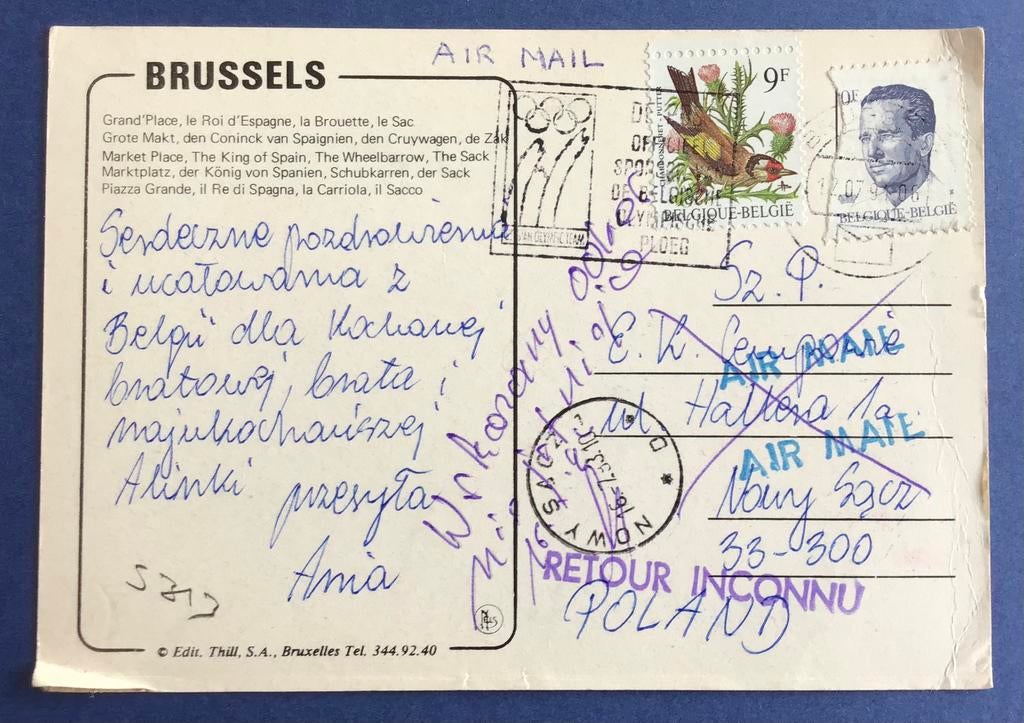 AIR MAIL
BRUSSELS
Grand'Place, le Roi d'Espagne, la Brouette, le Sac
Grote Makt, den Coninck van Spaignien, den Cruywagen, de Zak
Market Place, The King of Spain, The Wheelbarrow, The Sack
Marktplatz, der König von Spanien, Schubkarren, der Sack
Piazza Grande, il Re di Spagna, la Carriola, il Sacco
Serdeczne pozdrowienia
i ucałowania z
Belgii dla Kochanej
bratowej, brata i
najukochańszej
Alinki przesyła
Ania
© Edit. Thill, S.A., Bruxelles Tel. 344.92.40
9F
BELGIQUE-BELGIË
BELGIQUE-BELGIË
OFFICIEL
DE BELGISCHE
OLYMPISCHE
PLOEG
12.07.9
Wskazany
Sz. P.
E. K.
AIR MAIL
ul Hallera 1a
AIR MAIL
Nowy Sącz
33-300
POLAND
NOWY SĄCZ
RETOUR INCONNU